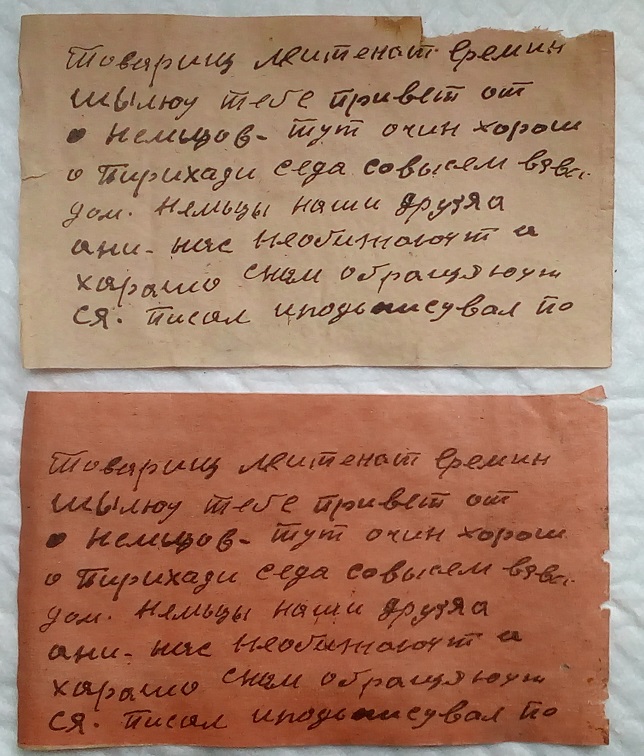 Товарищ леитенат Еремин
шылюу тебе привет от
о немцов- тут очин хорош
о пирихади седа совысем взво.
дом. немьцы наши друзяа
ани- нас необижаютт и
харашо снам обращяюутт
ся. писал иподьписувал по
Товарищ леитенат Еремин
шылюу тебе привет от
о немцов- тут очин хорош
о пирихади седа совысем взво.
дом. немьцы наши друзяа
ани- нас необижаютт и
харашо снам обращяюутт
ся. писал иподьписувал по